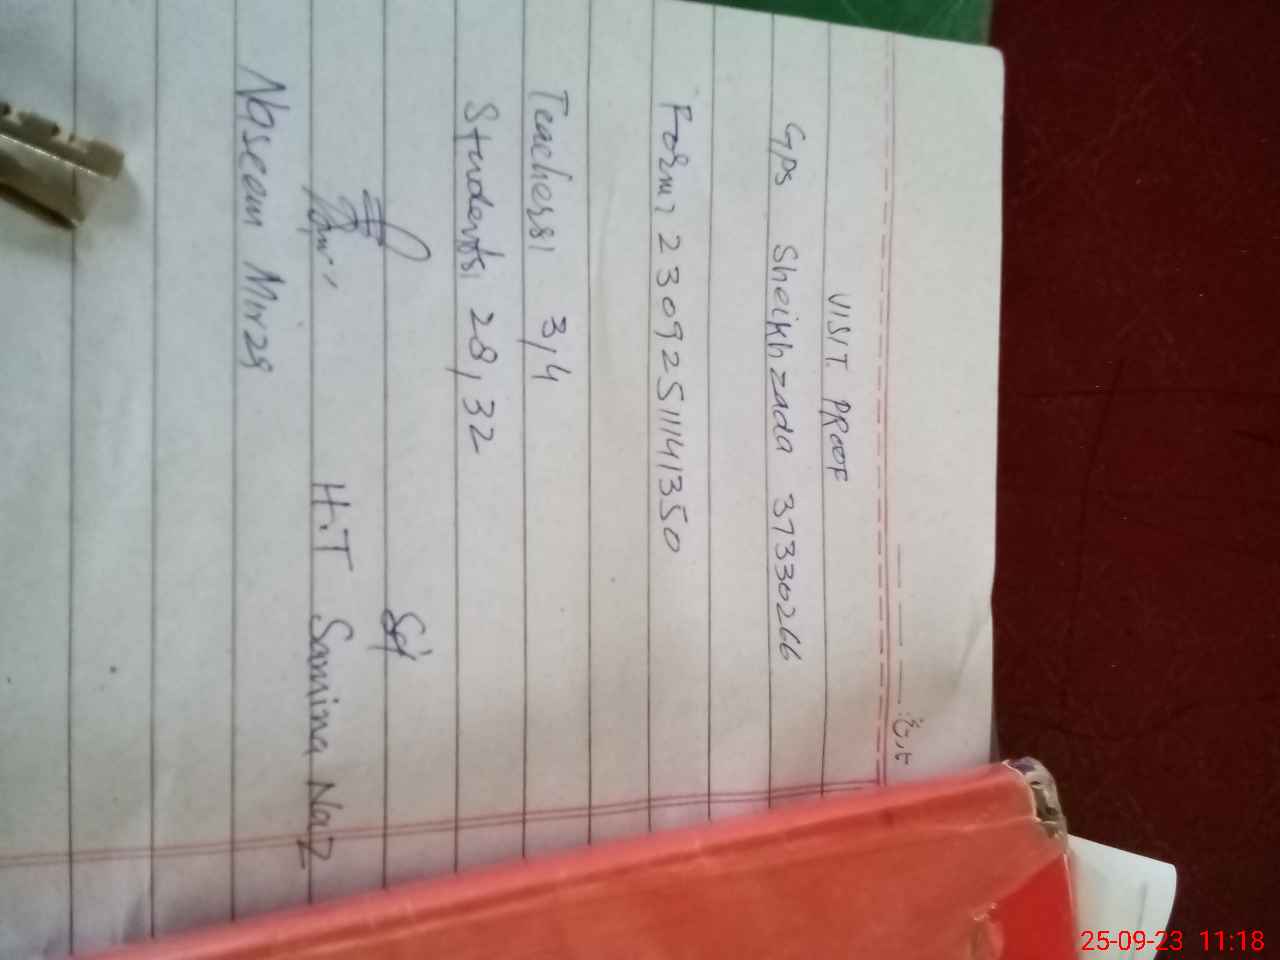 تاریخ:
VISIT PROOF
GPS Sheikh zada 37330266
Form: 23092511141350
Teachers: 3,4
Students: 28,32
Sd/
H.T Samina Naz
Naseem Mirza
25-09-23 11:18